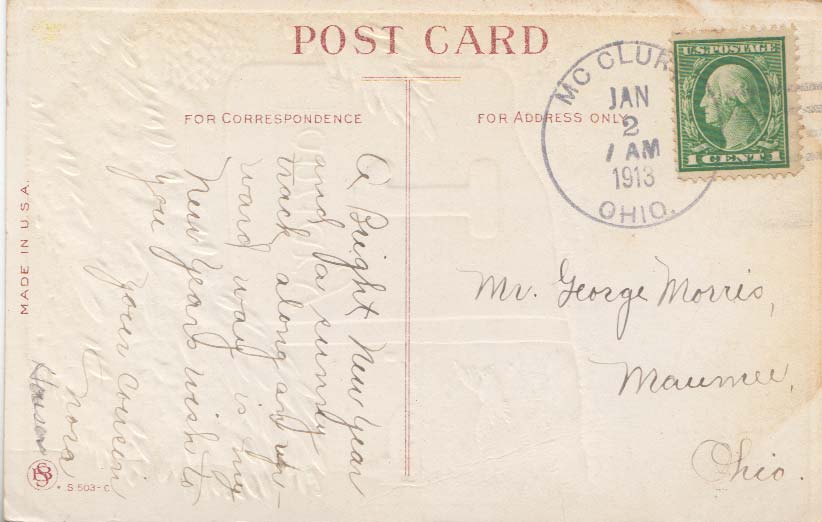 POST CARD
FOR CORRESPONDENCE
FOR ADDRESS ONLY
MC CLUR
JAN
2
7 AM
1913
OHIO.
U.S. POSTAGE
1 CENT 1
A Bright New Year
and a sunny
track along an up-
ward way is my
New Years wish to
you
your cousin
Nora
Hauser
Mr. George Morris,
Maumee,
Ohio.
MADE IN U.S.A.
S. 503-C